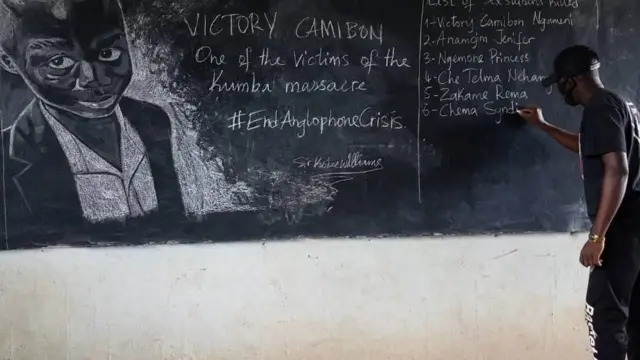 VICTORY CAMIBON
One of the victims of the
Kumba massacre
#EndAnglophoneCrisis.
List of six students killed
1-Victory Camibon Ngameni
2-Anangim Jenifer
3-Ngemone Princess
4-Che Telma Nchang
5-Zakame Rema
6-Chema Syndi